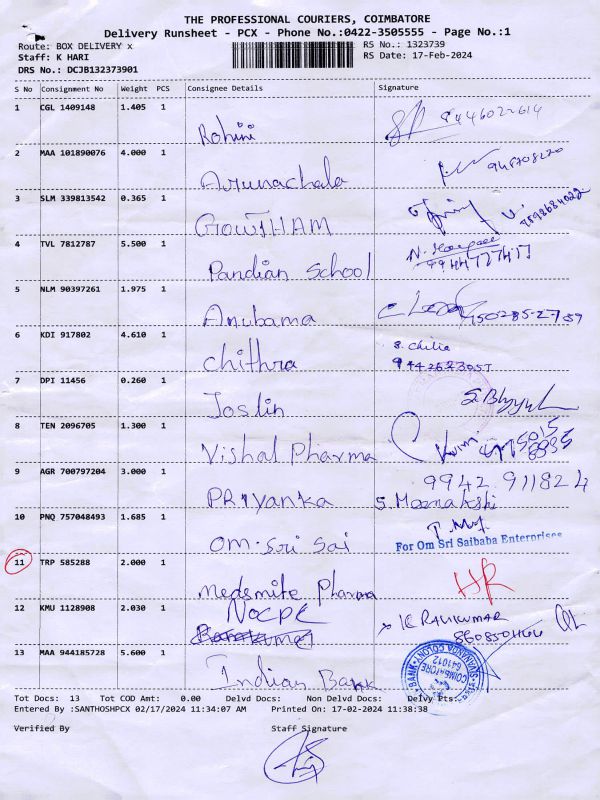 THE PROFESSIONAL COURIERS, COIMBATORE
Delivery Runsheet - PCX - Phone No.:0422-3505555 - Page No.:1
Route: BOX DELIVERY x RS No.: 1323739
Staff: K HARI RS Date: 17-Feb-2024
DRS No.: DCJB132373901
S No Consignment No Weight PCS Consignee Details Signature
1 CGL 1409148 1.405 1 Rohini 9446022614
2 MAA 101890076 4.000 1 Arunachala
3 SLM 339813542 0.365 1 GOWTHAM 9598684022
4 TVL 7812787 5.500 1 Pandian School
5 NLM 90397261 1.975 1 Anubama
6 KDI 917802 4.610 1 Chithra
7 DPI 11456 0.260 1 Joslin
8 TEN 2096705 1.300 1 Vishal Pharma
9 AGR 700797204 3.000 1 PRiyanka 9942 911824
S. Meenakshi
10 PNQ 757048493 1.685 1 om. Sri Sai
For Om Sri Saibaba Enterprises
11 TRP 585288 2.000 1 Medsmite Pharma HR
12 KMU 1128908 2.030 1 NOCPC K RAVIKUMAR
13 MAA 944185728 5.600 1 Indian Bank
COIMBATORE
641012
Tot Docs: 13 Tot COD Amt: 0.00 Delvd Docs: Non Delvd Docs: Delvy Pts.:
Entered By :SANTHOSHPCX 02/17/2024 11:34:07 AM Printed On: 17-02-2024 11:38:38
Verified By Staff Signature